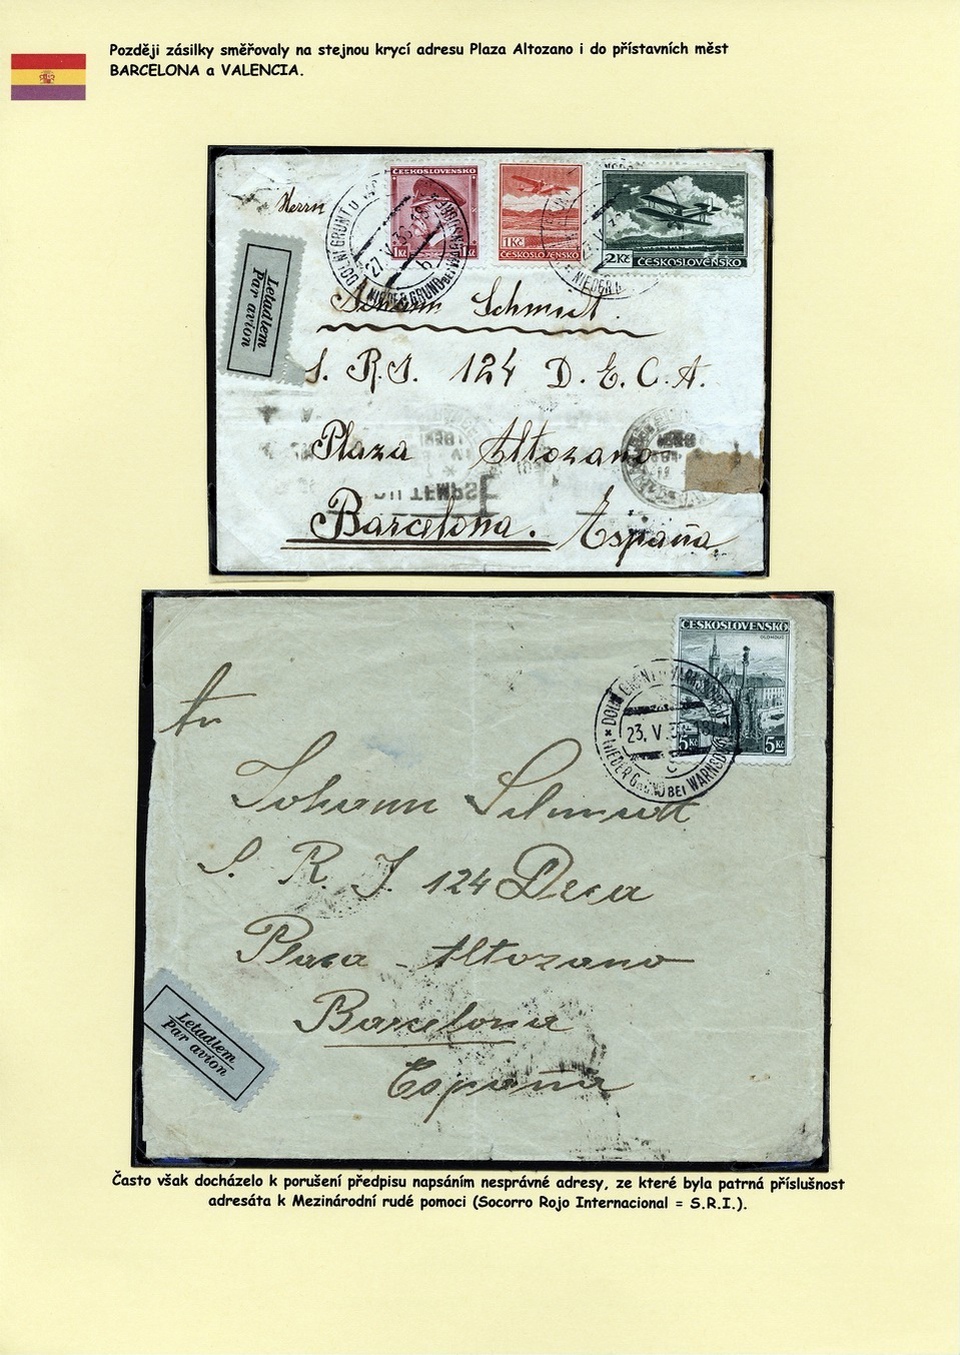 Později zásilky směřovaly na stejnou krycí adresu Plaza Altozano i do přístavních měst
BARCELONA a VALENCIA.
Herrn
ČESKOSLOVENSKO
1Kč 1Kč
1Kč
ČESKOSLOVENSKO
2Kč ČESKOSLOVENSKO
DOLNÍ GRUNT U
27. V. 38
b
NIEDER GRUND BEI
NIEDER
Letadlem
Par avion
Johann Schmidt.
S. R. I. 124 D. E. C. A.
Plaza Altozano
DU TEMPS
Barcelona. España
ČESKOSLOVENSKO
OLOMOUC
5Kč 5Kč
DOLNÍ GRUNT U VARNSDORFU
23. V. 38
c
NIEDER GRUND BEI WARNSDORF
An
Johann Schmidt
S. R. I. 124 Deca
Plaza Altozano
Barcelona
España
Letadlem
Par avion
Často však docházelo k porušení předpisu napsáním nesprávné adresy, ze které byla patrná příslušnost
adresáta k Mezinárodní rudé pomoci (Socorro Rojo Internacional = S.R.I.).